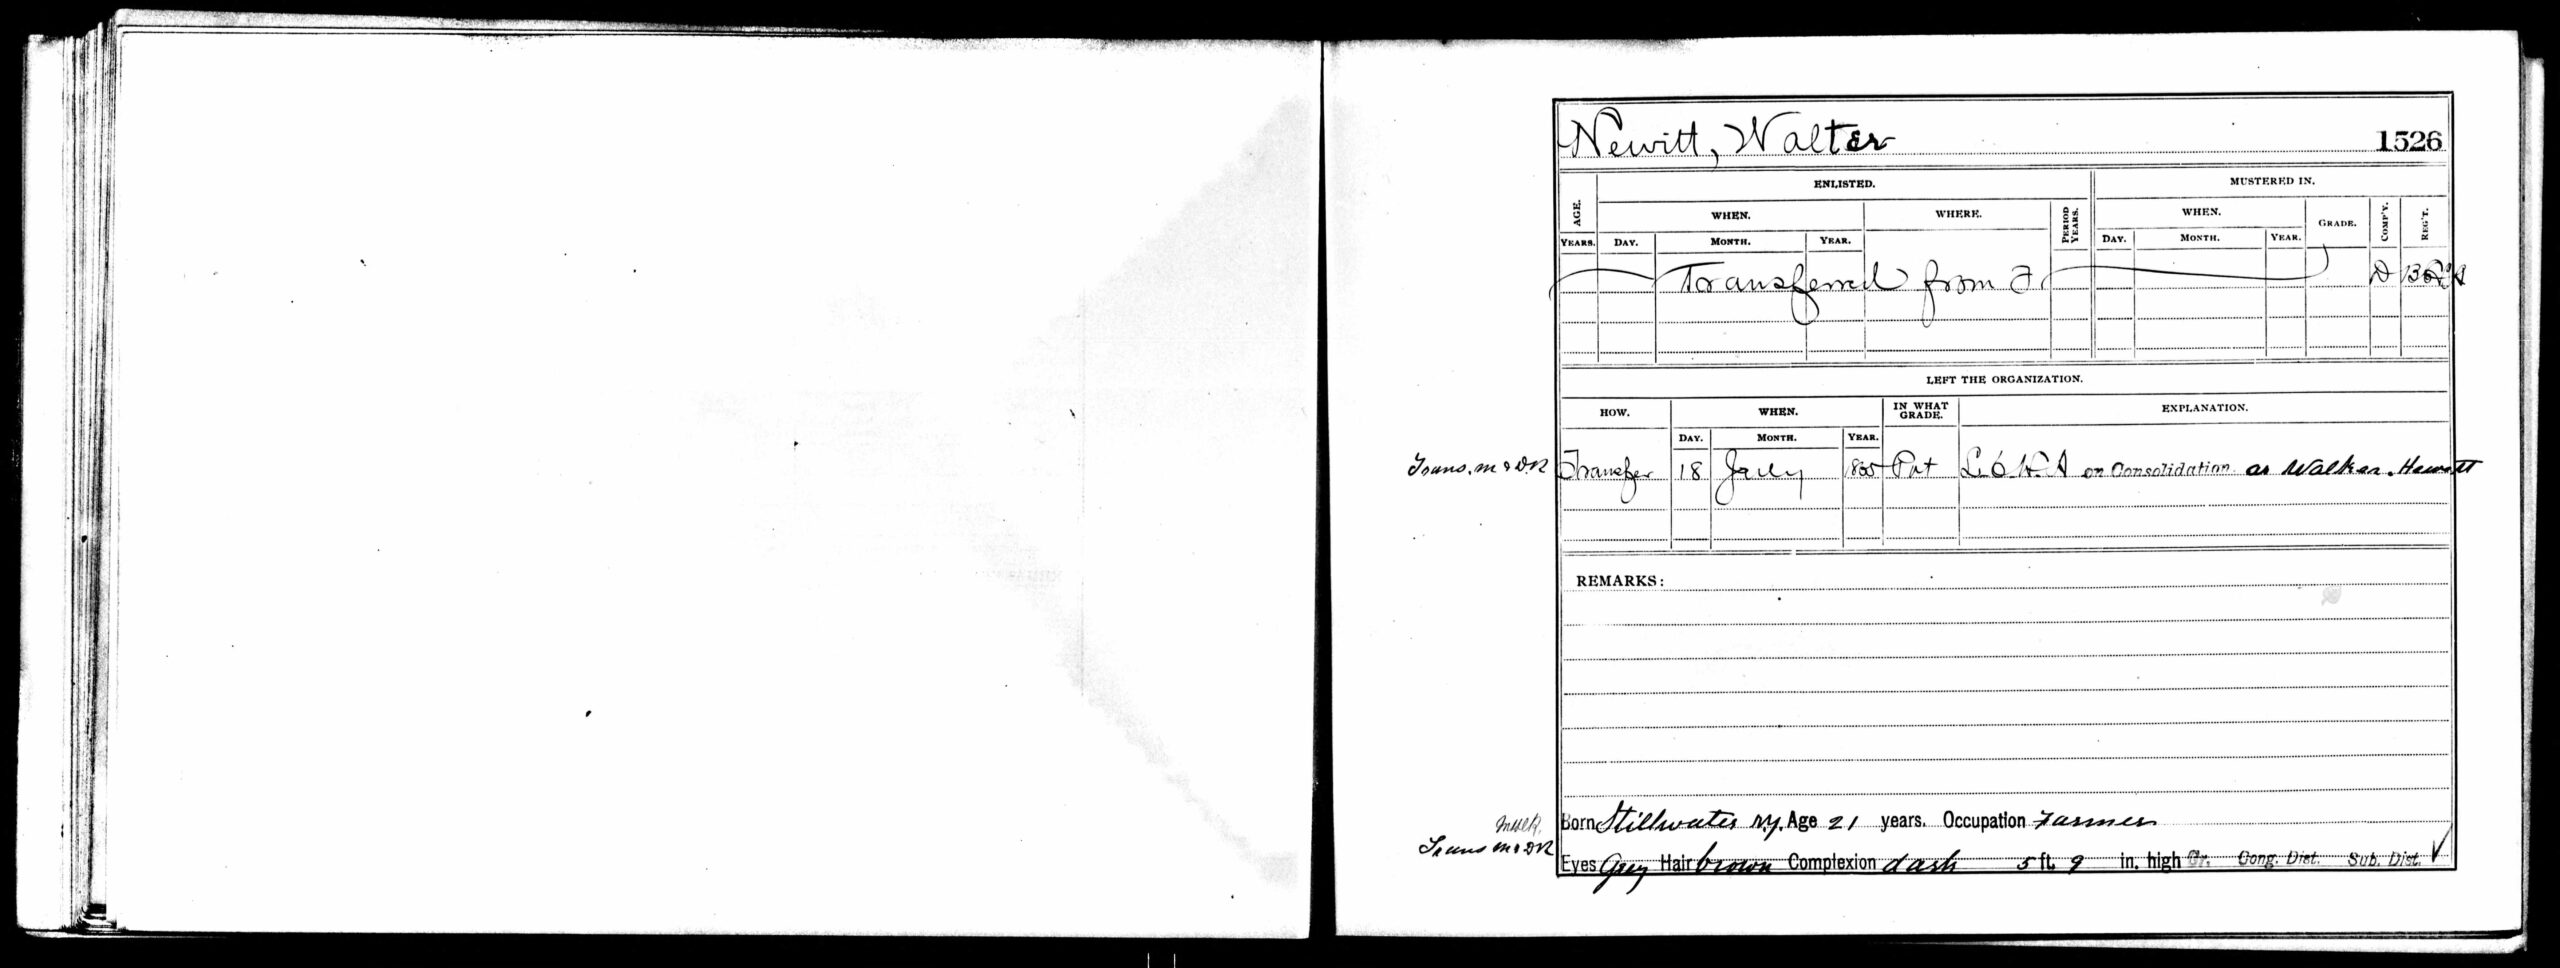 Newitt, Walter 1526
ENLISTED. MUSTERED IN.
AGE. WHEN. WHERE. PERIOD YEARS. WHEN. GRADE. COMP'Y. REG'T.
YEARS. DAY. MONTH. YEAR. DAY. MONTH. YEAR.
Transferred from F. D 13
LEFT THE ORGANIZATION.
HOW. WHEN. IN WHAT GRADE. EXPLANATION.
DAY. MONTH. YEAR.
Trans. M & DR Transfer 18 July 1865 Pvt L 6 H.A on Consolidation as Walker Hewitt
REMARKS:
Born Stillwater N.Y. Age 21 years. Occupation Farmer
Trans M & DR
Eyes Grey Hair brown Complexion dark 5 ft. 9 in. high Cr. Cong. Dist. Sub. Dist. ✓